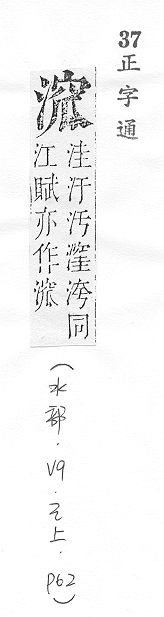 37
正字通
溛
洼汙汚漥洿同
江賦亦作
(水部.V9.巳上.P62)